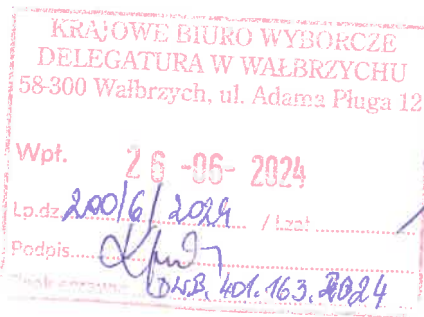 KRAJOWE BIURO WYBORCZE
DELEGATURA W WAŁBRZYCHU
58-300 Wałbrzych, ul. Adama Pługa 12
Wpł. 26 -06- 2024
Lp.dz. 200/6/2024 / l.zał.
Podpis
DWB. 401.163.2024